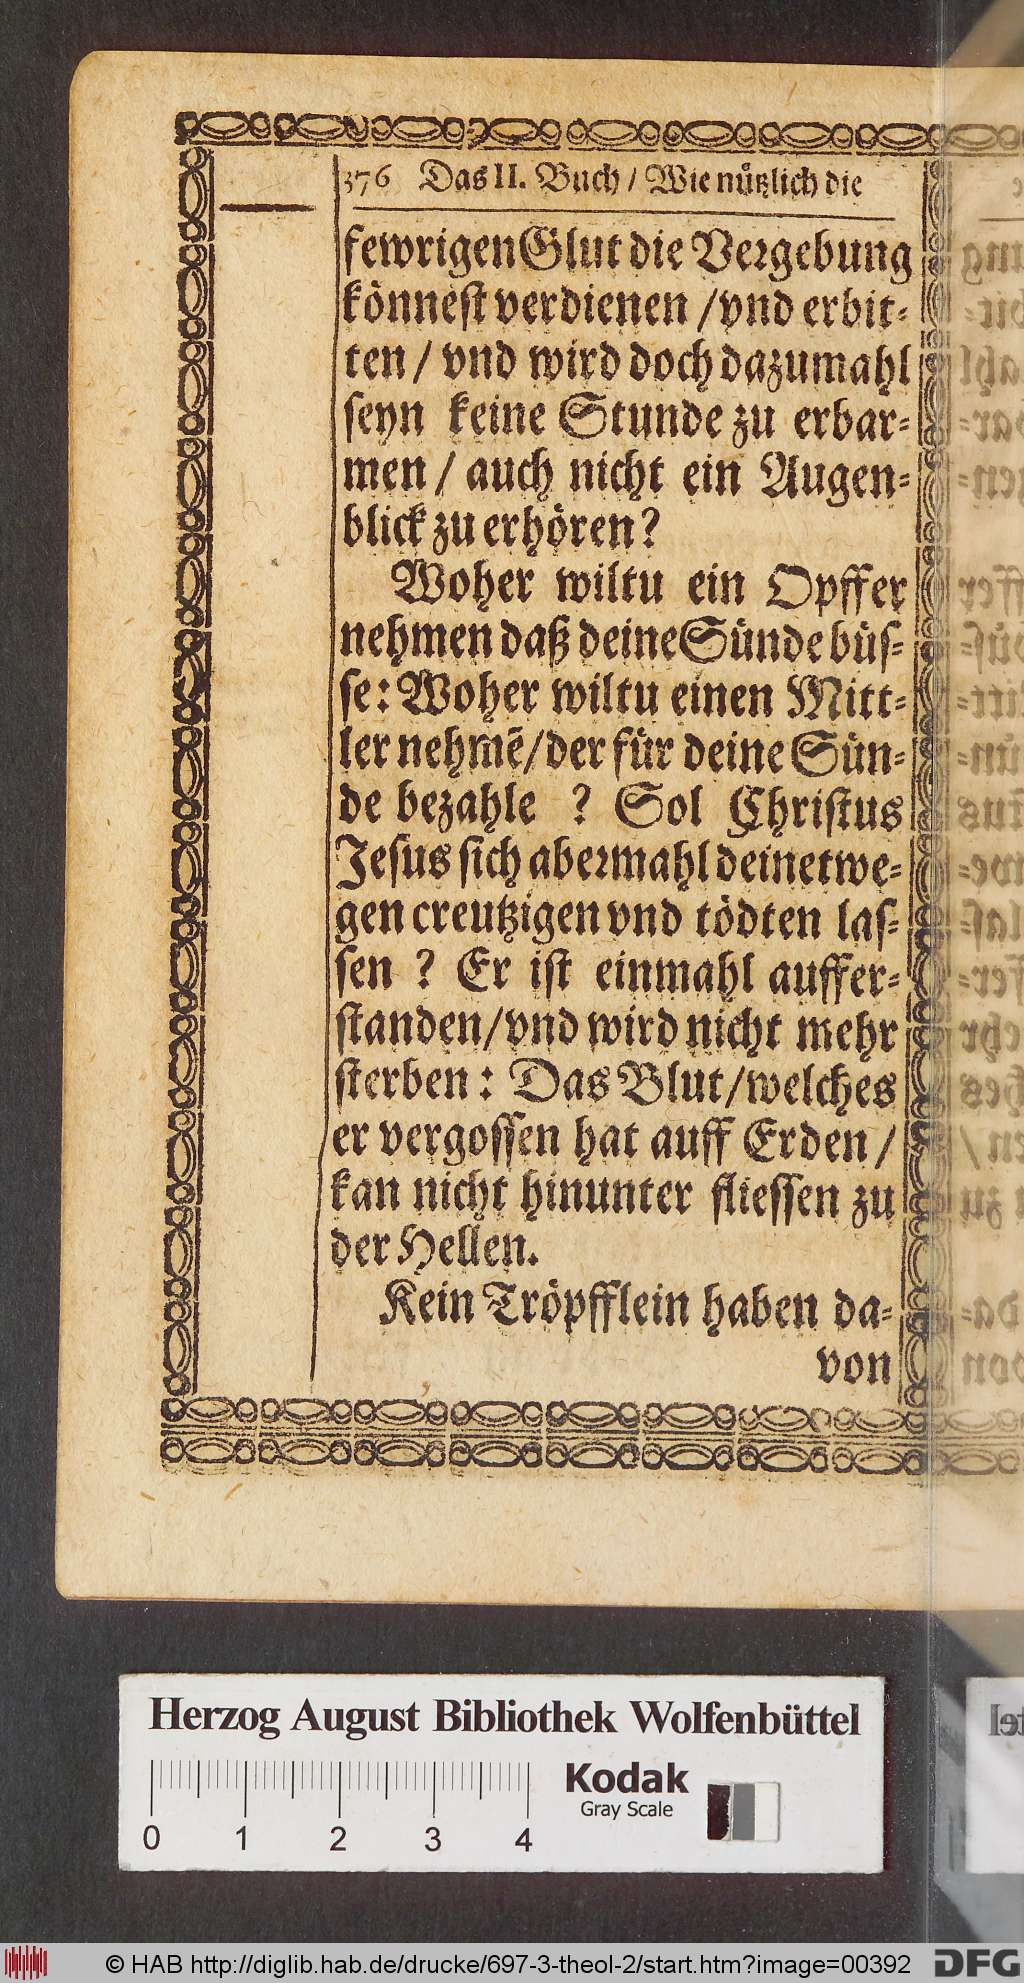 376 Das II. Buch / Wie nützlich die
fewrigen Glut die Vergebung
könnest verdienen / vnd erbit-
ten / vnd wird doch dazumahl
seyn keine Stunde zu erbar-
men / auch nicht ein Augen-
blick zu erhören?
Woher wiltu ein Opffer
nehmen daß deine Sünde büs-
se: Woher wiltu einen Mitt-
ler nehmẽ / der für deine Sün-
de bezahle ? Sol Christus
Jesus sich abermahl deinetwe-
gen creutzigen vnd tödten las-
sen ? Er ist einmahl auffer-
standen / vnd wird nicht mehr
sterben: Das Blut / welches
er vergossen hat auff Erden /
kan nicht hinunter fliessen zu
der Hellen.
Kein Tröpfflein haben da-
von
Herzog August Bibliothek Wolfenbüttel
Kodak
Gray Scale
0 1 2 3 4
© HAB http://diglib.hab.de/drucke/697-3-theol-2/start.htm?image=00392
DFG